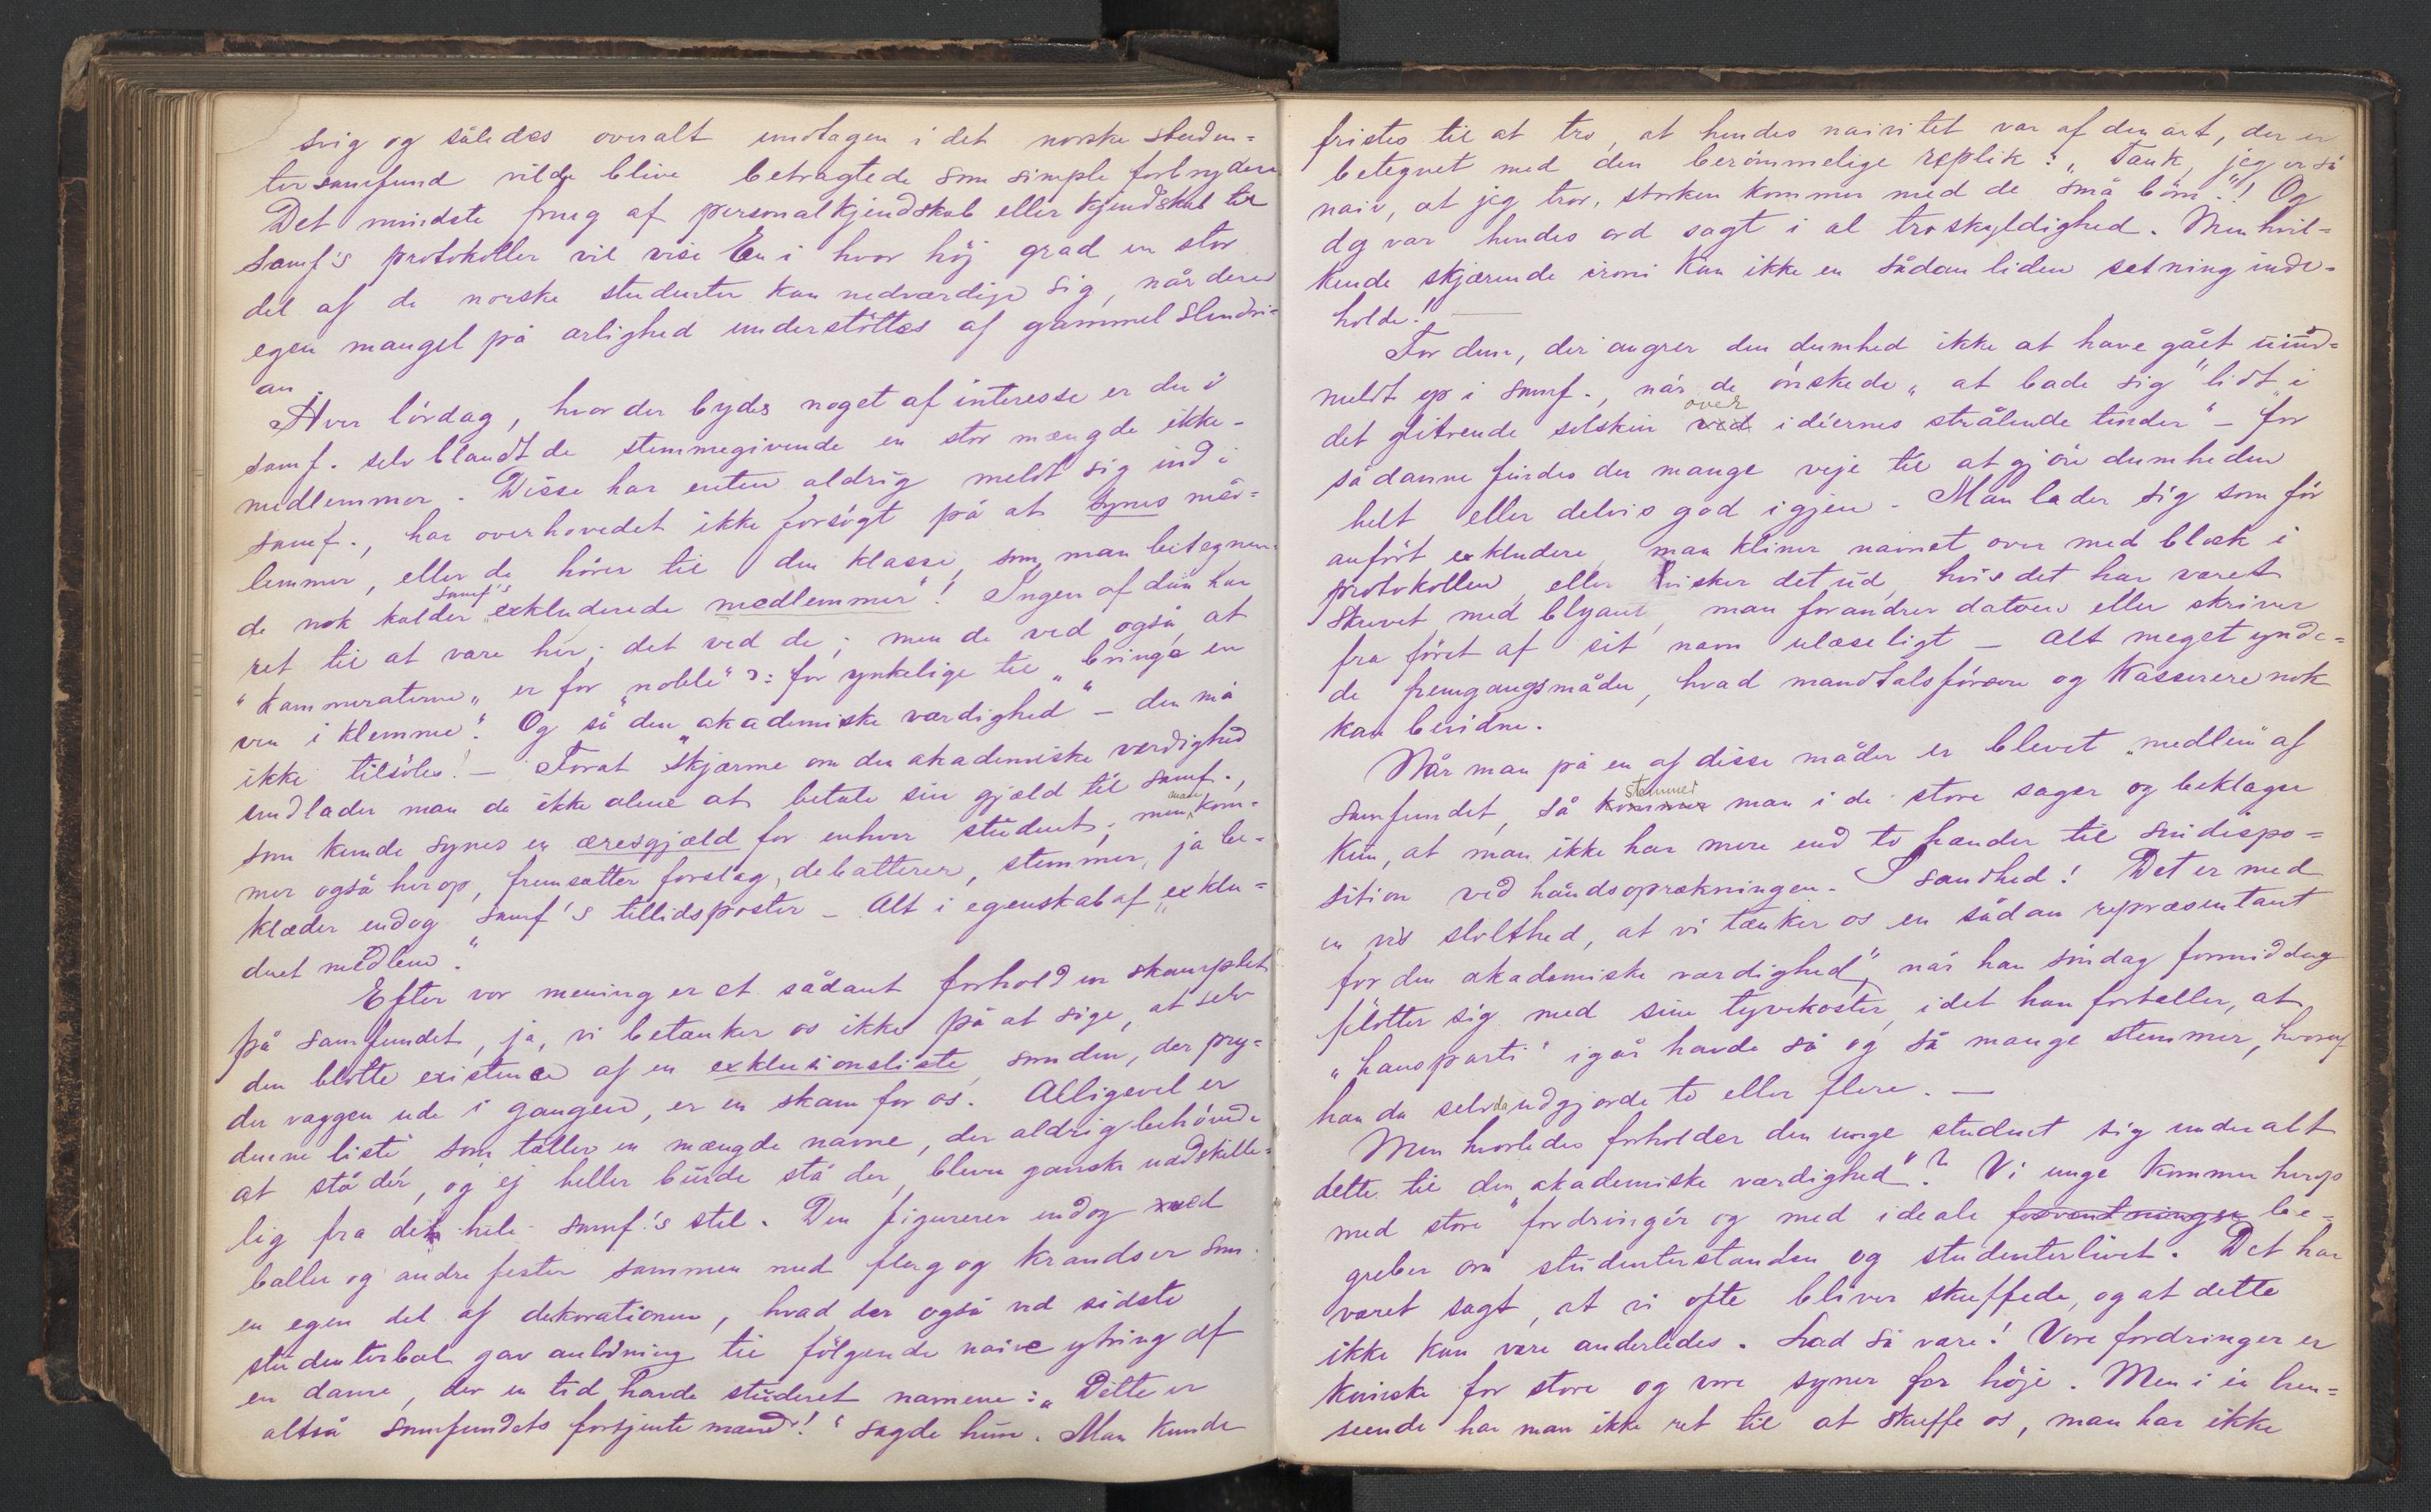 svig og således overalt undtagen i det norske studen=
tersamfund vilde blive betragtede som simple forbrydere
Det mindste smug af personalkjendskab eller kjendskab til
Samf's protokoller vil vise En i hvor høj grad en stor
del af de norske studenter kan nedværdige sig, når deres
egen mangel på ærlighed understöttes af gammel slendri=
an
Hver lördag, hvor der bydes noget af interesse er der i
samf. selv blandt de stemmegivende en stor mængde ikke-
medlemmer. Disse har enten aldrig meldt sig ind i
samf., har overhovedet ikke forsögt på at synes med=
lemmer, eller de hörer til den klasse, som man betegnen=
de nok kalder samf's "exkluderede medlemmer"! Ingen af dem har
ret til at være her; det ved de; men de ved også, at
"kammeraterne" er for "noble" ɔ: for ynkelige til "bringe en
ven i klemme". Og så "den akademiske værdighed" – den må
ikke tilsöles! – Forat "skjærme om den akademiske værdighed
undlader man da ikke alene at betale sin gjæld til samf.,
som kunde synes en æresgjæld for enhver student; men man kom=
mer også herop, fremsætter forslag, debatterer, stemmer, ja be=
klæder endog samf's tillidsposter – Alt i egenskab af "exklu=
duet medlem".
Efter vor mening er et sådant forhold en skamplet
på samfundet, ja, vi betænker os ikke på at sige, at selv
den blotte existence af en exklusionsliste, som den, der pry=
der væggen ude i gangen, er en skam for os. Alligevel er
denne liste som tæller en mængde navne, der aldrig behövede
at stå dér, og ej heller burde stå der, bleven ganske uadskille=
lig fra det hele samf's stel. Den figurerer endog ved
baller og andre fester sammen med flag og krandser som
en egen del af dekorationen, hvad der også ved sidste
studenterbal gav anledning til fölgende naive ytring af
en dame, der en tid havde studeret navnene: "Dette er
altså samfundets fortjente mænd!" sagde hun. Man kunde
fristes til at tro, at hendes naivitet var af den art, der er
betegnet med den berömmelige replik: "Tænk, jeg er så
naiv, at jeg tror, storken kommer med de små börn."! Og
dog var hendes ord sagt i al troskyldighed. Men hvil=
kende skjærende ironi kan ikke en sådan liden sætning inde=
holde! —
For dem, der angrer den dumhed ikke at have gået uind=
meldt op i samf., når de önskede "at bade sig" lidt i
det glitrende solskin ved over idéernes strålende tinder" – for
sådanne findes der mange veje til at gjöre dumheden
helt eller delvis god igjen. Man lader sig som för
anfört exkludere, man kliner navnet over med blæk i
protokollen, eller visker det ud, hvis det har været
skrevet med blyant, man forandrer datoen eller skriver
fra föret af sit navn ulæseligt – alt meget ynde=
de fremgangsmåder, hvad mandtalsförere og kasserere nok
kan bevidne.
Når man på en af disse måder er blevet "medlem" af
samfundet, så kommer stemmer man i de store sager og beklager
kun, at man ikke har mere end to hænder til sindispo=
sition ved håndsoprækningen. I sandhed! Det er med
en vis stolthed, at vi tænker os en sådan repræsentant
for den akademiske værdighed", når han söndag formiddag
flotter sig med sine tyvekoster, idet han fortæller, at
"hans parti" igår havde så og så mange stemmer, hvoraf
han da selv da udgjorde to eller flere. —
Men hvorledes forholder den unge student sig under alt
dette til den "akademiske værdighed"? Vi unge kommer herop
med store fordringer og med ideale forventninger be=
greber om studenterstanden og studenterlivet. Det har
været sagt, at vi ofte bliver skuffede, og at dette
ikke kan være anderledes. Lad så være! Vore fordringer er
kanske for store og vore syner for höje. Men i én hen=
seende har man ikke ret til at skuffe os, man har ikke